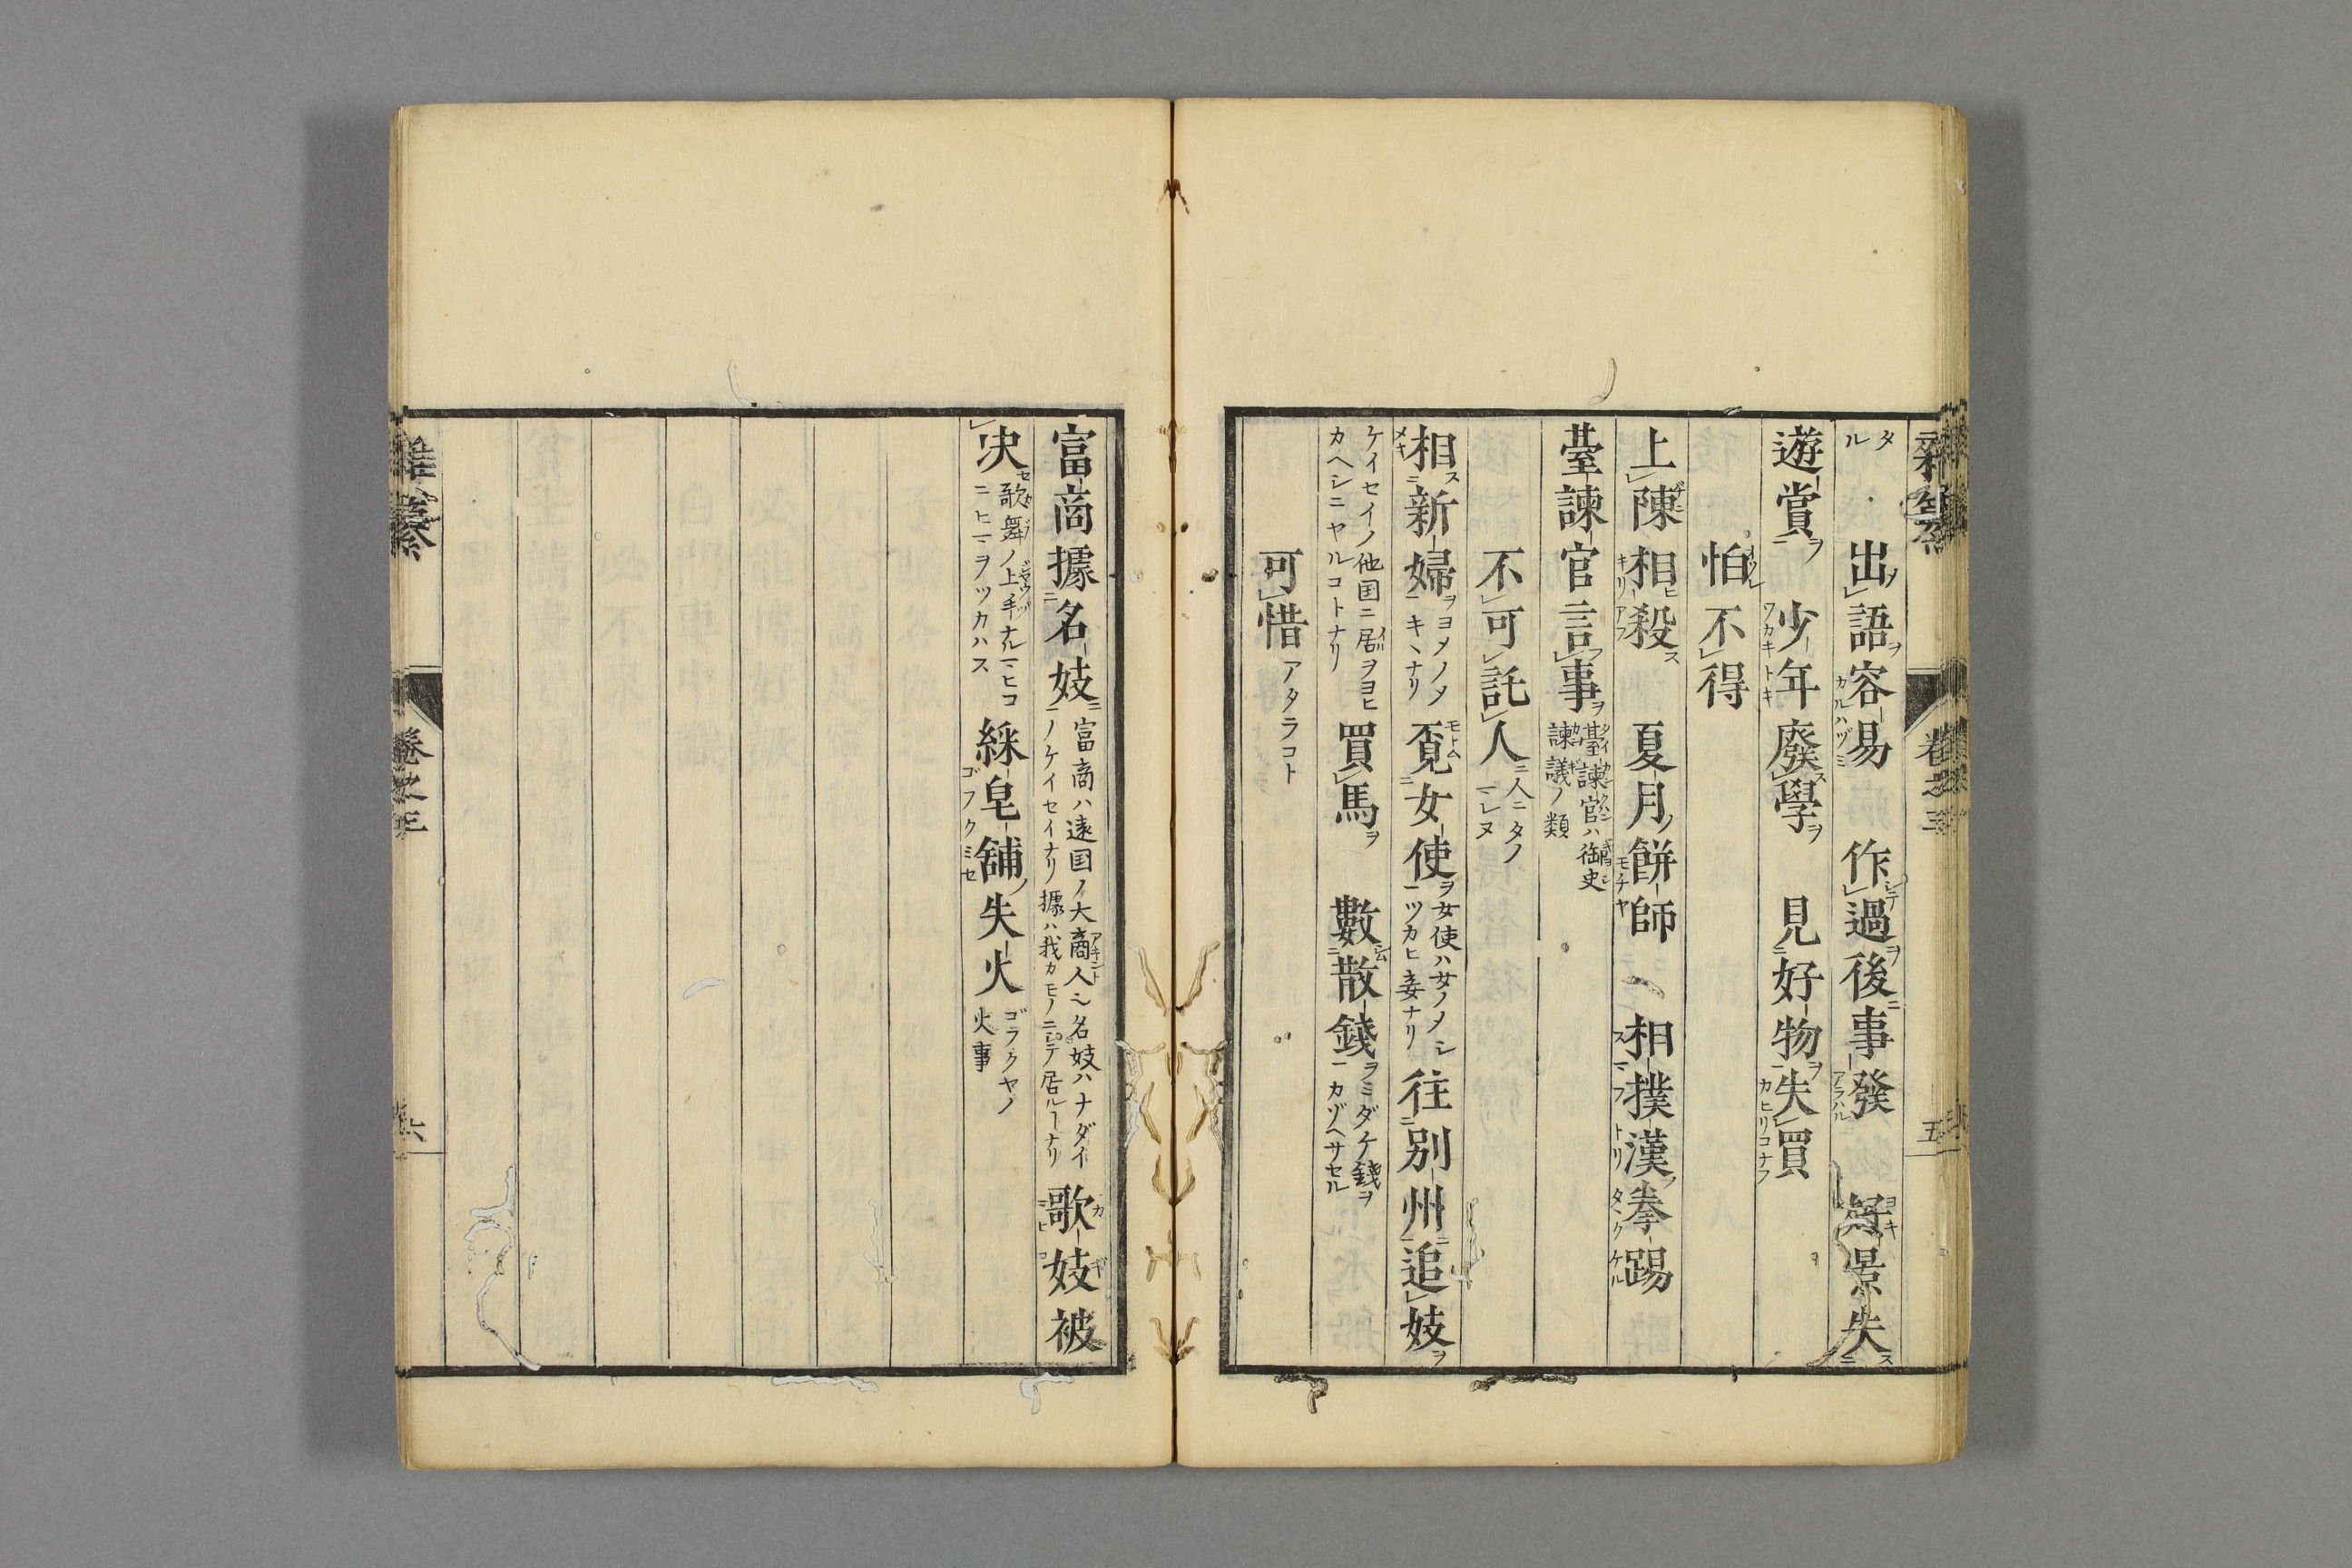 タル 出語容易 作過後事發 好景失
遊賞 少年廢學 見好物失買
怕不得
上陳相殺 夏月餅師 相撲漢拳踢
臺諫官言事 臺諫官ハ御史諫議ノ類
不可託人 人ニタノマレヌ
相新婦 ヨメノメキヽナリ 覔女使 女使ハ女ノメシツカヒ妾ナリ 往別州追妓
ケイセイノ他国ニ居ヲヨヒカヘシニヤルコトナリ 買馬 數散錢 ミダケ錢ヲカゾヘサセル
可惜 アタラコト
富商據名妓 富商ハ遠国ノ大商人 名妓ハナダイノケイセイナリ 據ハ我カモノニ 居ル ナリ 歌妓被
决 歌舞ノ上手ナル ヒコニヒマヲツカハス 綵皂舖失火 ゴラクヤノ火事
雜纂 卷之三 五
雜纂 卷之三 六